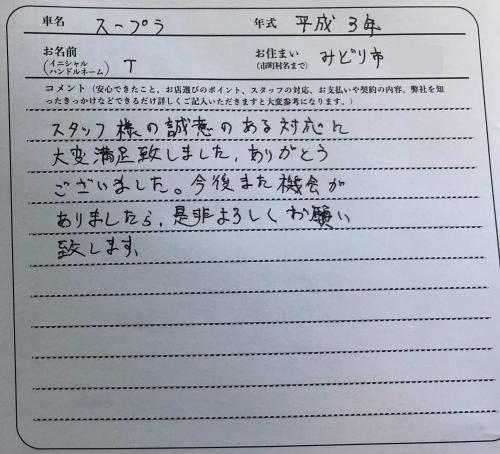 車名 スープラ 年式 平成 3年
お名前 (イニシャル ハンドルネーム) T お住まい (市町村名まで) みどり市
コメント(安心できたこと、お店選びのポイント、スタッフの対応、お支払いや契約の内容、弊社を知
ったきっかけなどできるだけ詳しくご記入いただきますと大変参考になります。)
スタッフ様の誠意のある対応に
大変満足致しました。ありがとう
ございました。今後また機会が
ありましたら、是非よろしくお願い
致します。